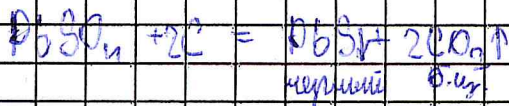 PbSO₄ + 2C = PbS↓ + 2CO₂↑
черный б.цв.